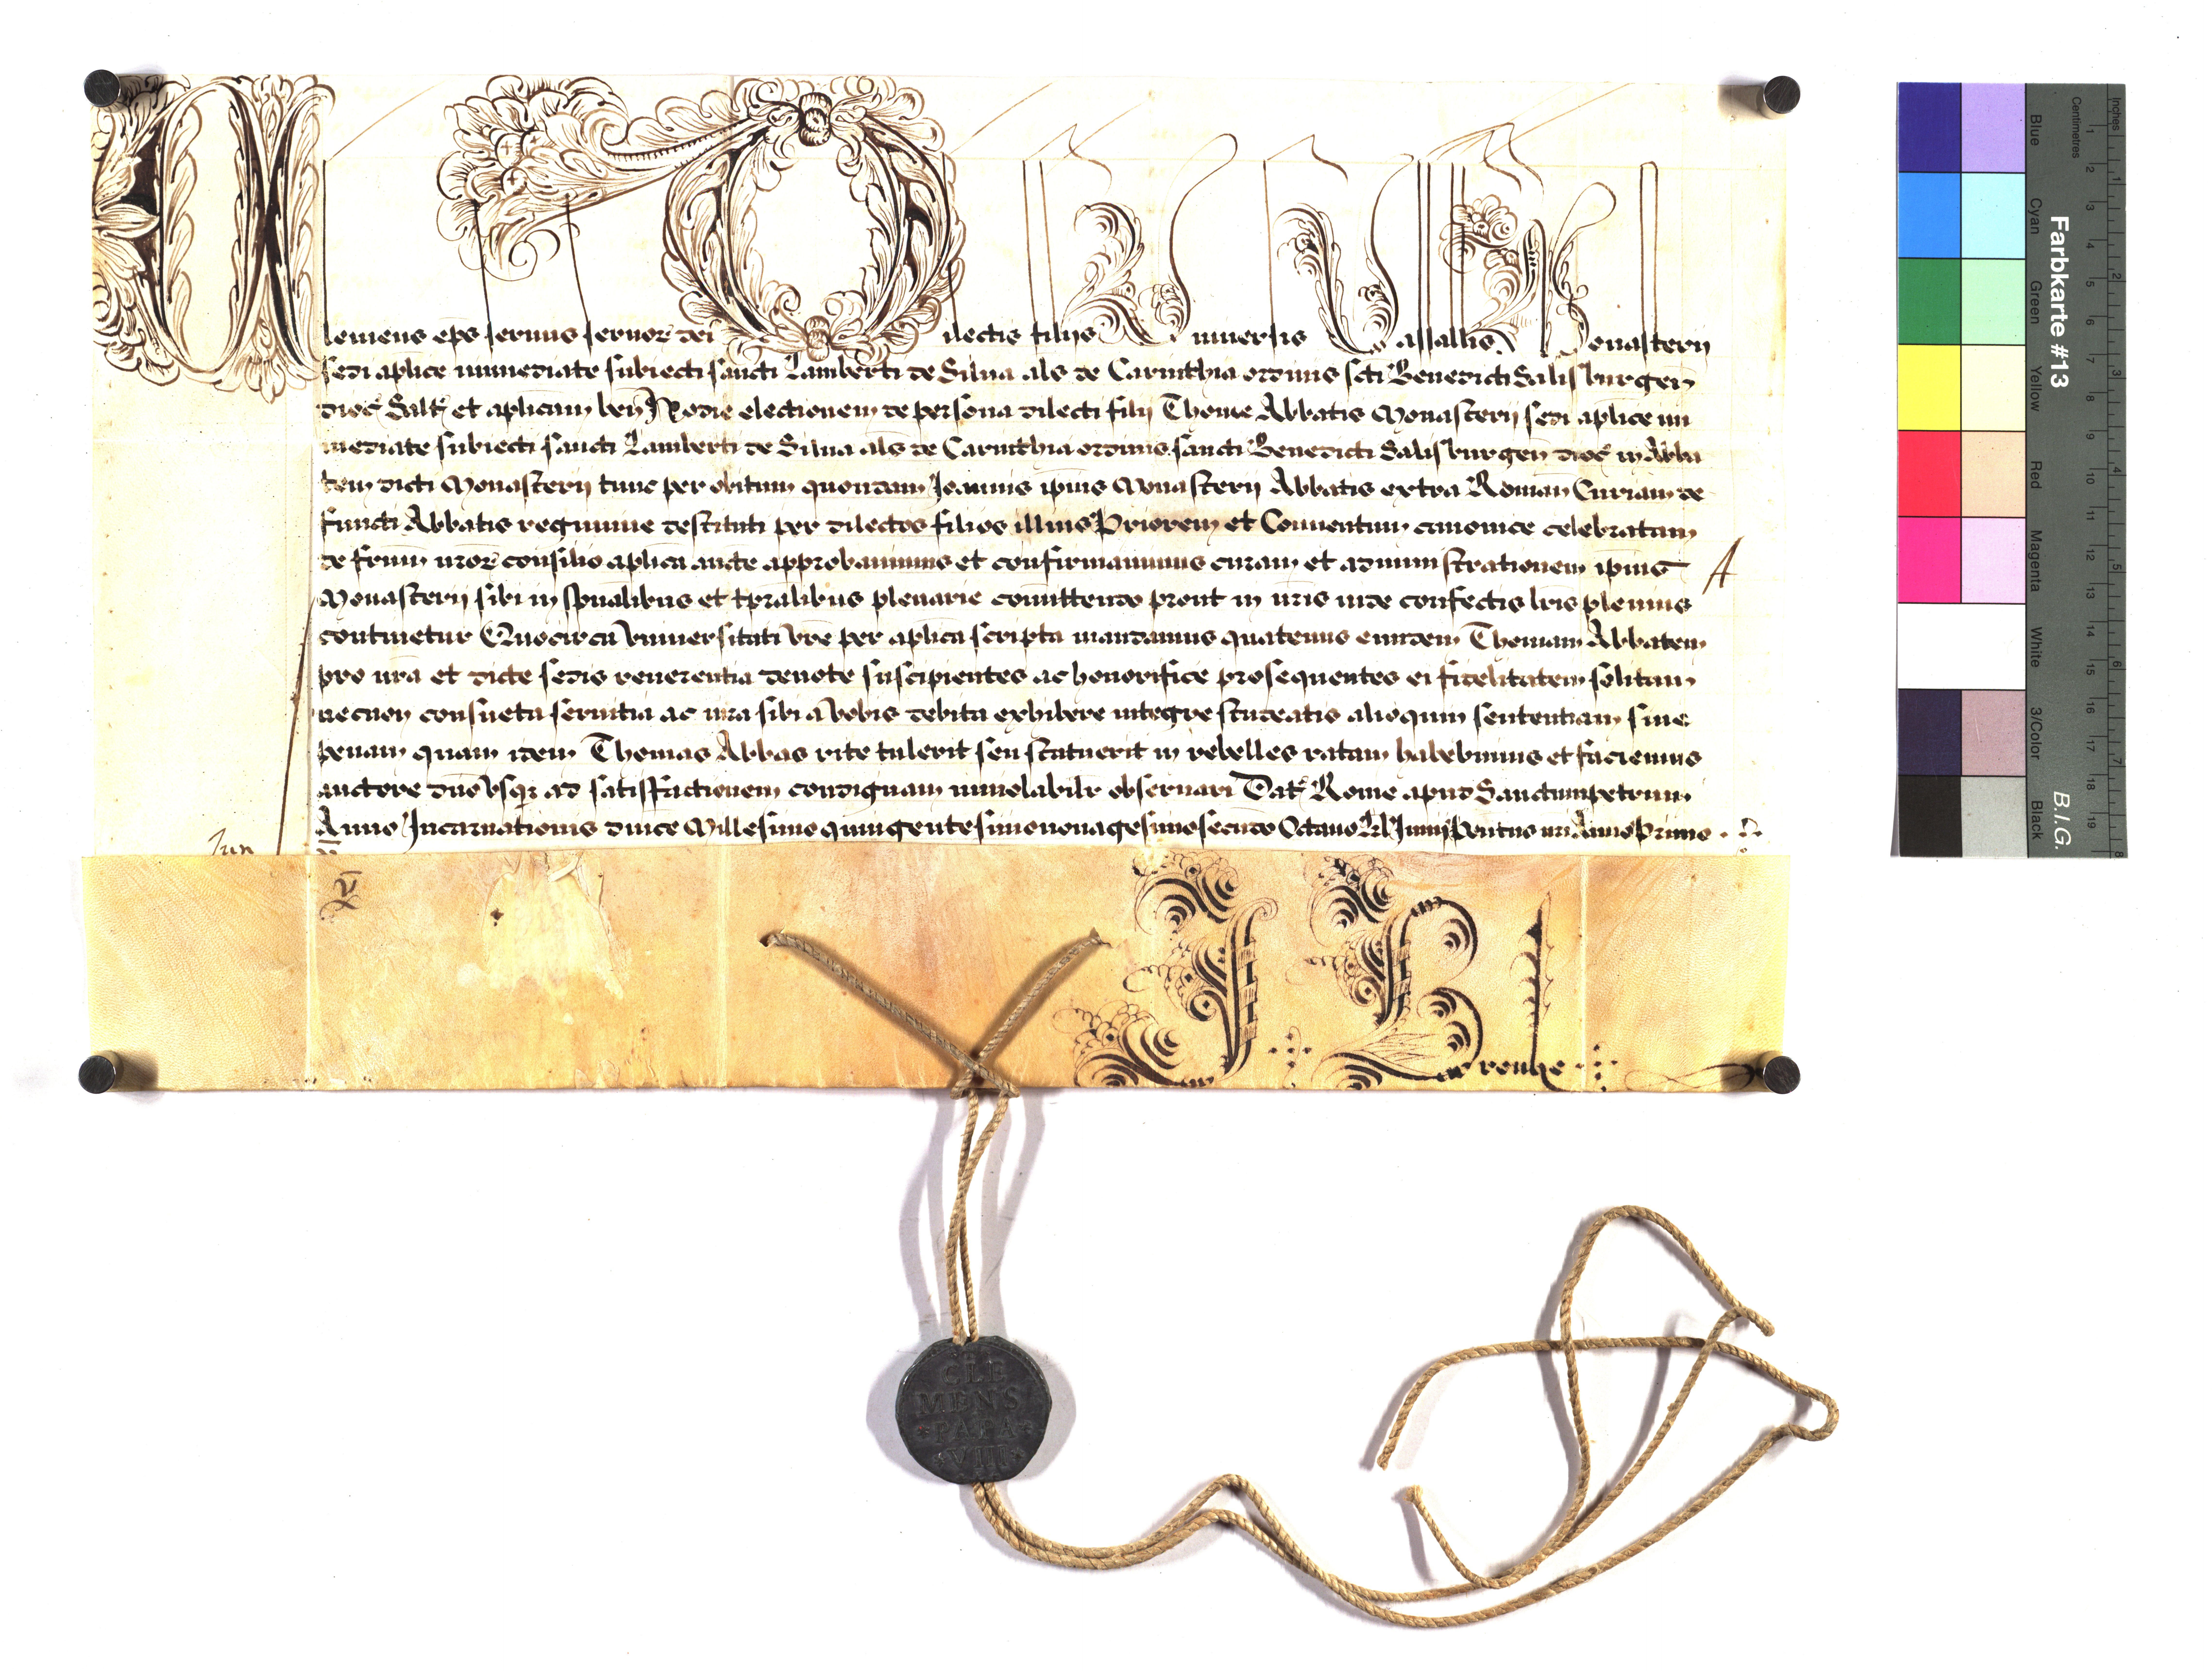 Clemens eps servus servor dei Dilectis filijs Universis Vassallis Monasterij
sedi aplice immediate subiecti sancti Lamberti de Silva als de Carinthia ordinis scti Benedicti Salisburgen
dioc Salt et aplicam ben Hodie electionem de persona dilecti filij Thome Abbatis Monasterij sedi aplice im
mediate subiecti sancti Lamberti de Silva als de Carinthia ordinis sancti Benedicti Salisburgen dioc in Abba
tem dicti Monasterij tunc per obitum quondam Joannis ipius Monasterij Abbatis extra Roman Curiam de
functi Abbatis regimine destituti per dilectos filios illius Priorem et Conventum canonice celebratam
de frum nror consilio aplica aucte approbavimus et confirmavimus curam et administrationem ipius
Monasterij sibi in spualibus et tpralibus plenarie comittendo prout in nris inde confectis lris plenius
continetur Quocirca Universitati vre per aplica scripta mandamus quatenus eundem Thomam Abbatem
pro nra et dicte sedis reverentia devote suscipientes ac honorifice prosequentes ei fidelitatem solitam
necnon consueta servitia ac iura sibi a vobis debita exhibere integre studeatis alioquin sententiam sive
penam quam idem Thomas Abbas rite tulerit seu statuerit in rebelles ratam habebimus et faciemus
auctore dno usq ad satisfactionem condignam inviolabilr observari Dat Rome apud Sanctumpetrum
Anno Incarnationis dnice Millesimo quingentesimo nonagesimo secundo Octavo Kl Junij Pontus nri Anno Primo
Jun
A
CLE
MENS
PAPA
VIII
Farbkarte #13
B.I.G.
Inches
Centimetres
Blue
Cyan
Green
Yellow
Red
Magenta
White
3/Color
Black
1 2 3 4 5 6 7 8 9 10 11 12 13 14 15 16 17 18 19
1 2 3 4 5 6 7 8